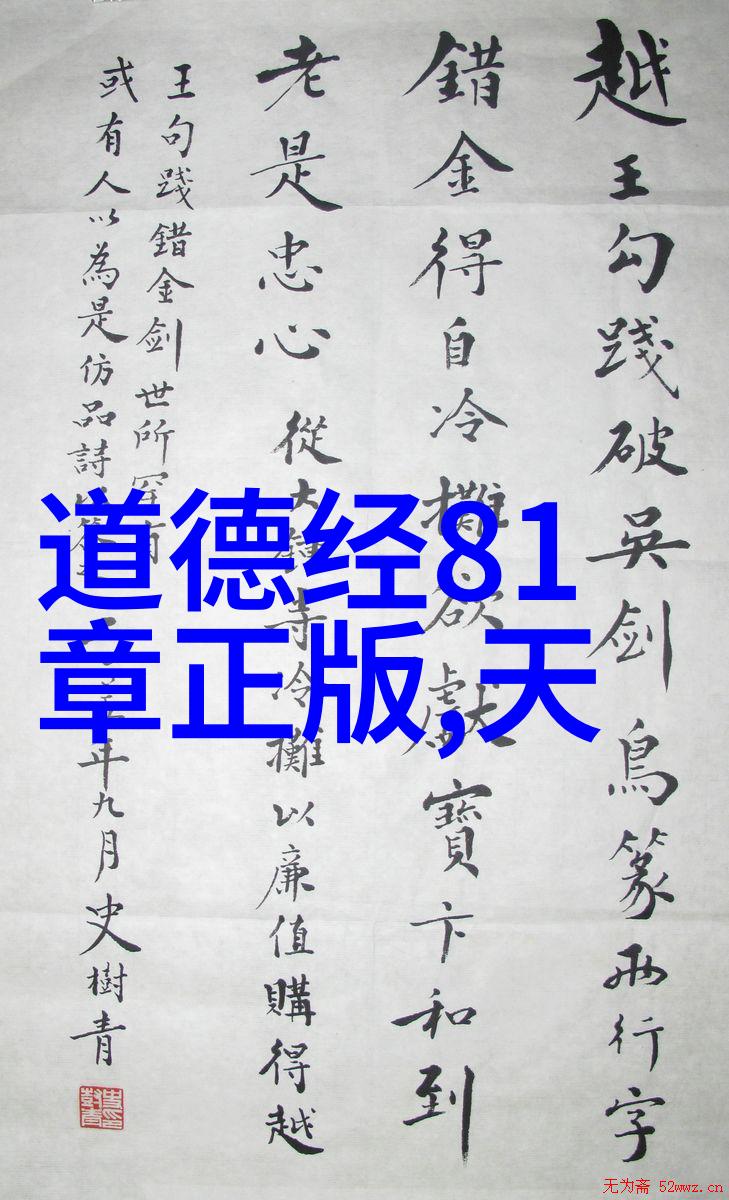 越王勾踐破吳剑鳥篆兩行字
錯金得自冷攤欲獻寶卞和到
老是忠心 從大鐘寺冷攤以廉值購得越
王句踐錯金剑世所罕有
或有人以為是仿品詩以年九月史樹青
道德经81
章正版,天
无为斋 52wwz.cn